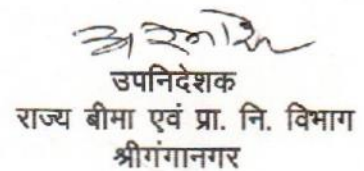 उपनिदेशक
राज्य बीमा एवं प्रा. नि. विभाग
श्रीगंगानगर